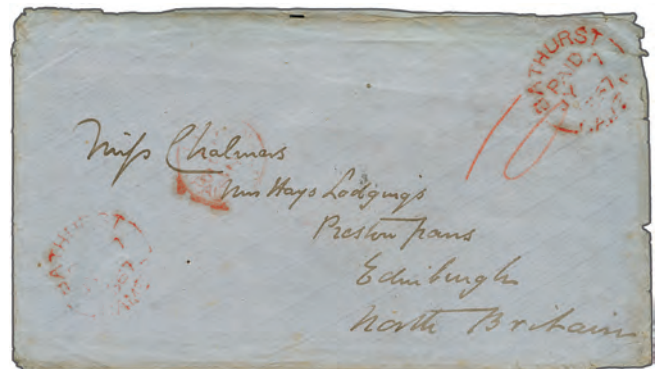 BATHURST
PAID
10
Miss Chalmers
Mrs Hays Lodgings
Preston pans
Edinburgh
North Britain
BATHURST